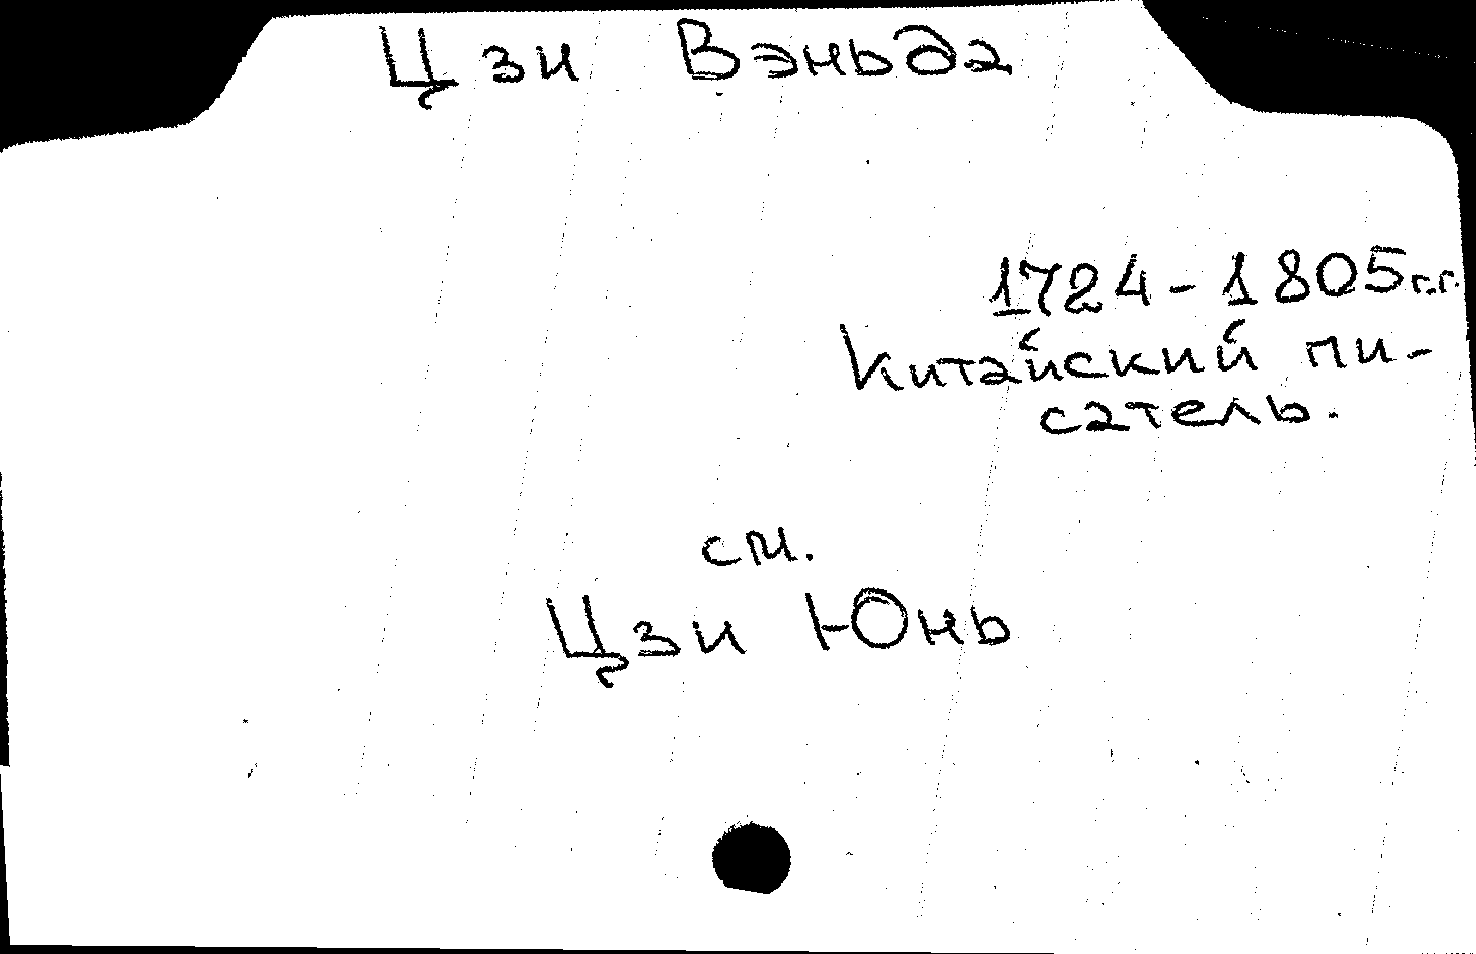 Цзи Вэньда
1724-1805 г.г.
Китайский пи-
сатель.
см.
Цзи Юнь